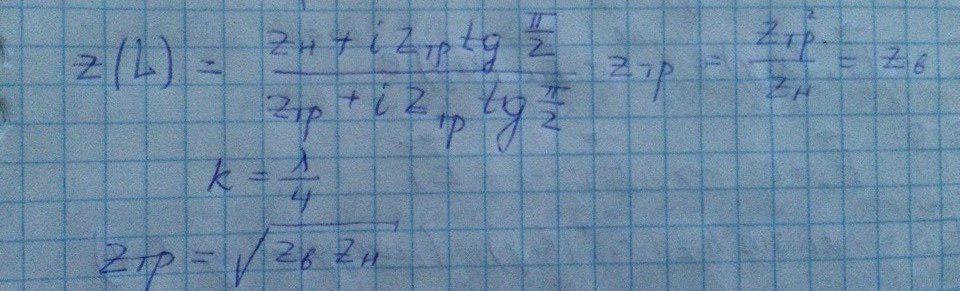 z(L) = \frac{z_н + i z_{тр} tg \frac{π}{2}}{z_{тр} + i z_{тр} tg \frac{π}{2}} z_{тр} = \frac{z_{тр}^2}{z_н} = z_в
k = \frac{λ}{4}
z_{тр} = \sqrt{z_в z_н}